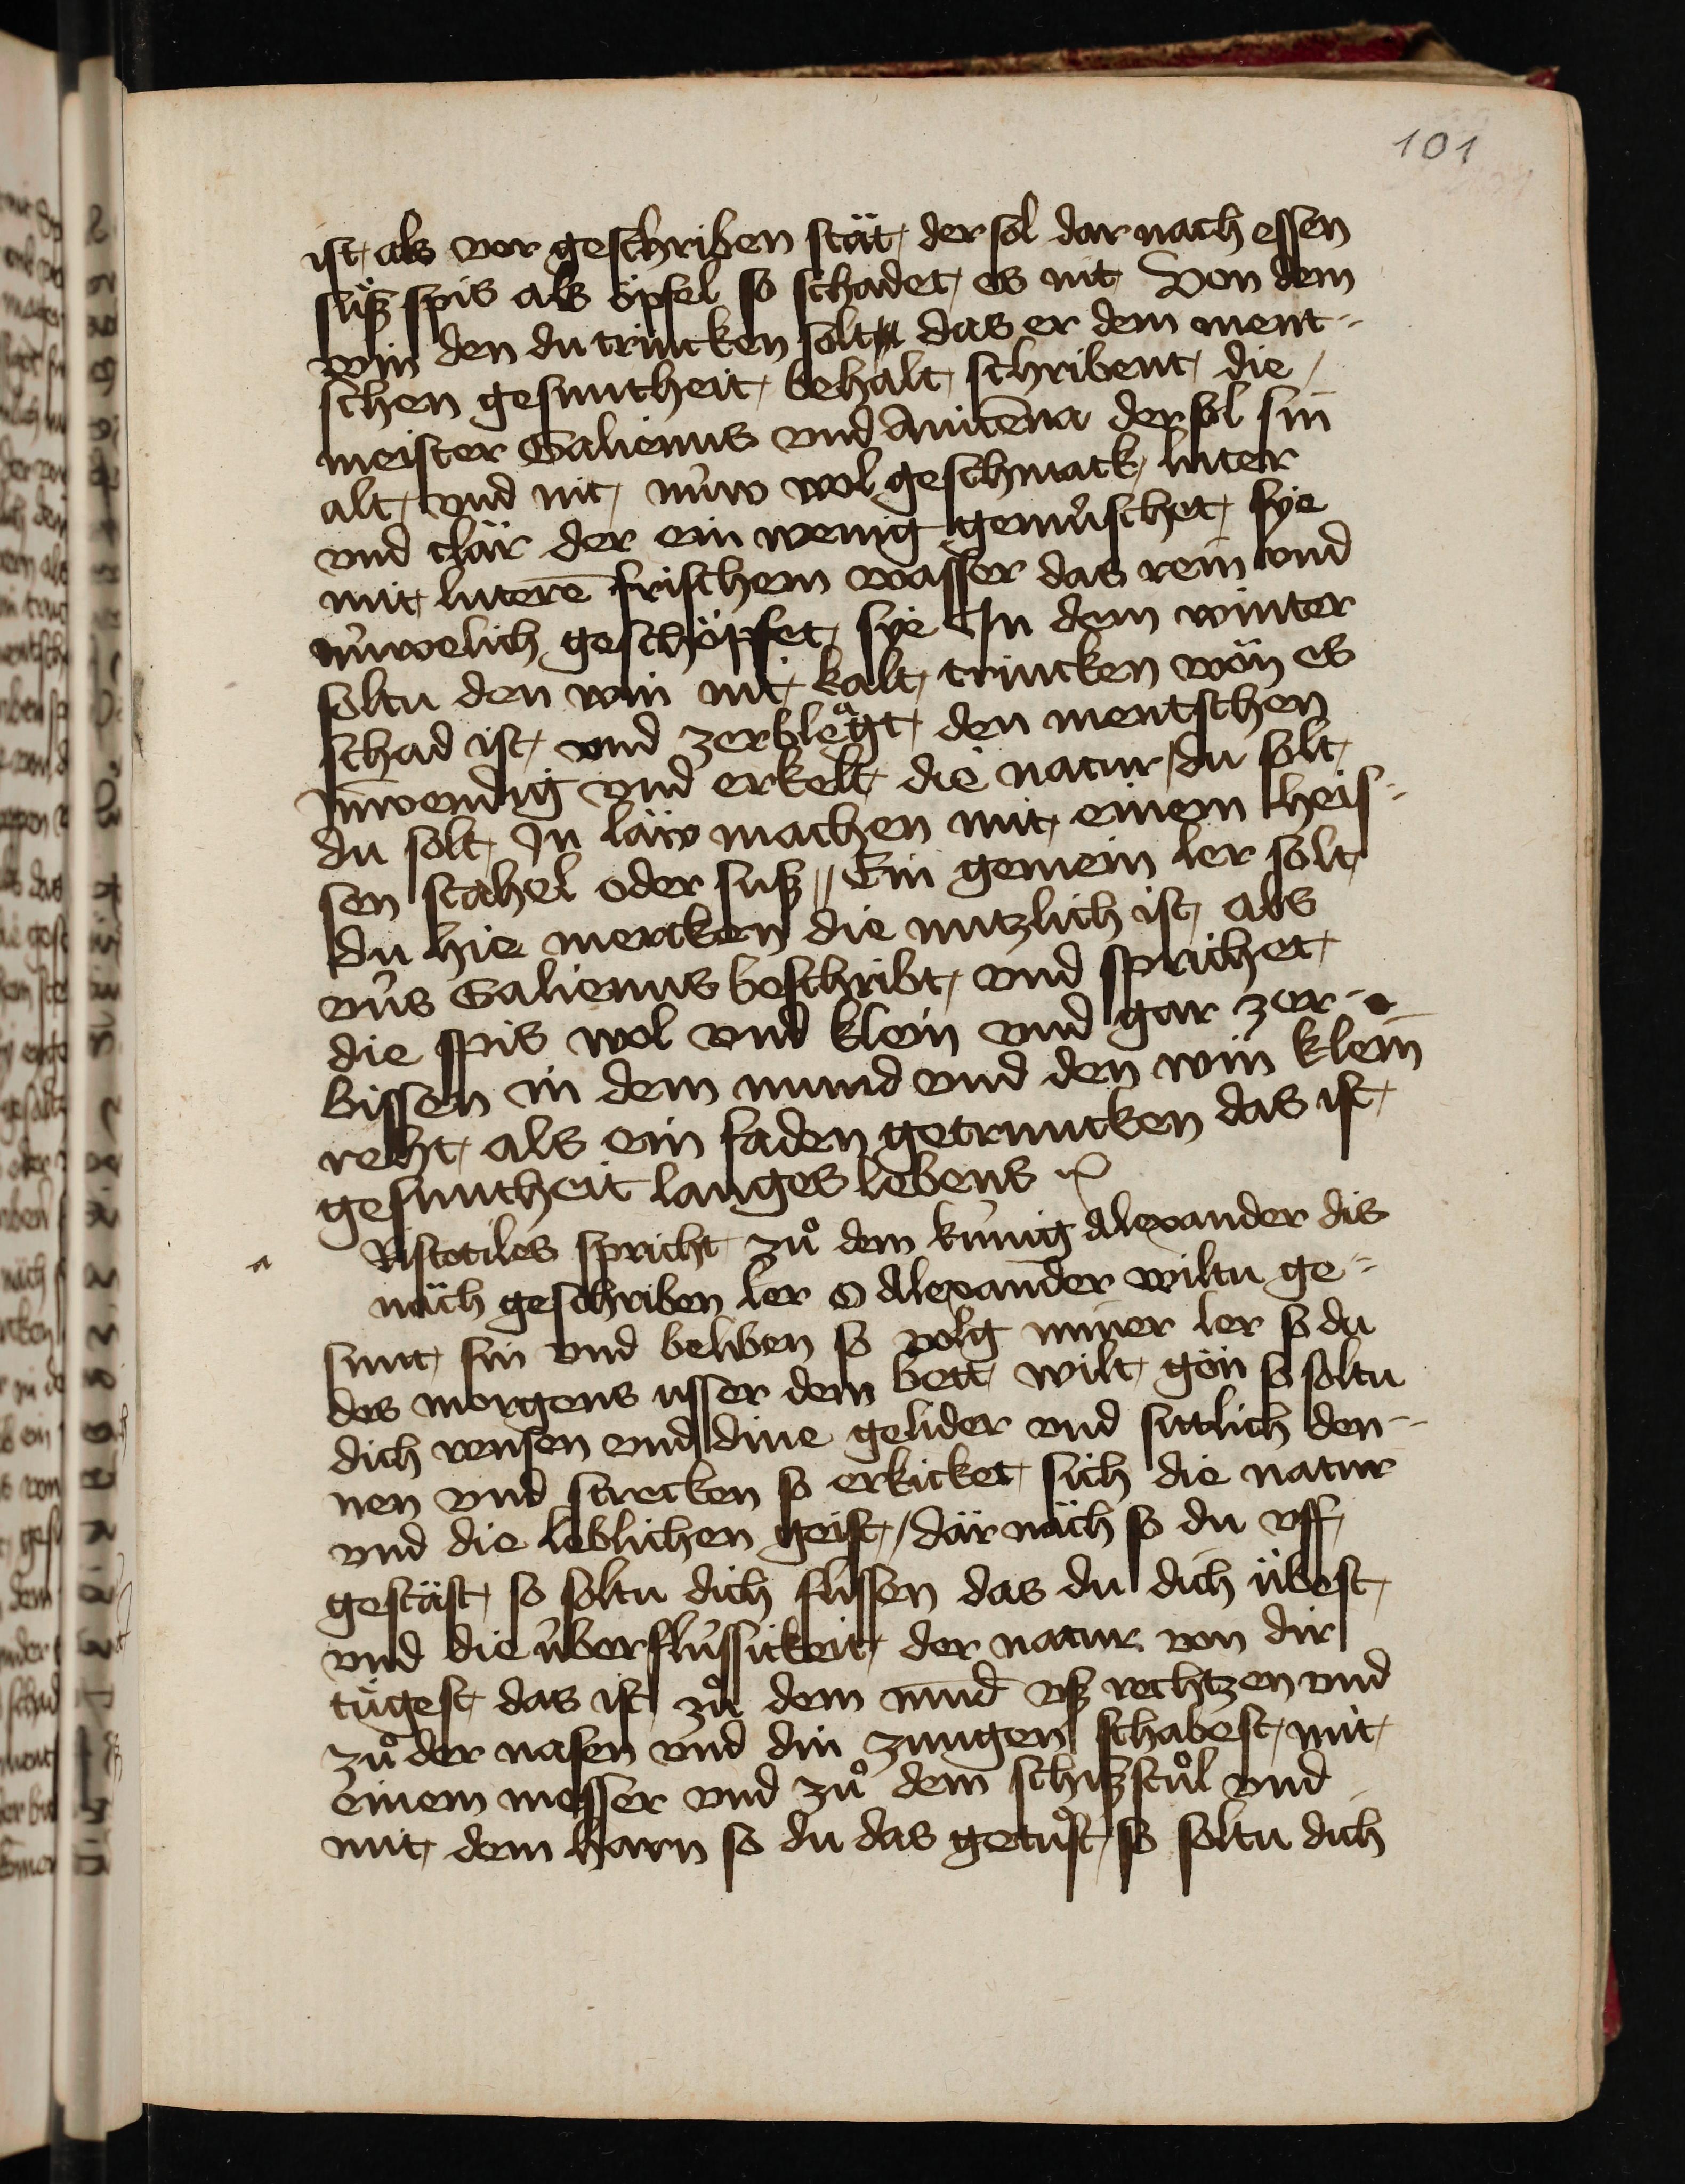 101
ist als vor geschriben stät der sol dar nach essen
süß spis als öpfel so schadet es nit Von dem
win den du trincken solt das er dem ment-
schen gesuntheit behalt schribent die
meister Galienus vnd Auicēna der sol sin
alt vnd nit nüw wol geschmack luter
vnd clär der ein wenig gemüschet sye
mit luterē frischem wasser das rein vnd
nüwelich geschöpfet sye In dem winter
soltu den win nit kalt trincken wön es
schad ist vnd zerblegt den mentschen
Inwendig vnd erkelt die natur / du solt
du solt In läw machen mit einem heis-
sen stahel oder suß // Ein gemein ler solt
du hie mercken die nutzlich ist als
vns Galienus beschribt vnd sprichet
die spis wol vnd klein vnd gar zer-
bissen in dem mund vnd den win klein
reht als ein faden getruncken das ist
gesuntheit langes lebens
a Ristotiles spricht zů dem künig Alexander dis
näch geschriben ler O Alexander wiltu ge-
sunt sin vnd beliben so volg miner ler so du
des morgens usser dem bett wilt gön so soltu
dich rensen vnd dine gelider vnd sittlich den-
nen vnd strecken so erkicket sich die natur
vnd die leblichen geist / där näch so du vff
gestäst so soltu dich flissen das du dich übest
vnd die überflüssickeit der natur von dir
tügest das ist zů dem mūd vß rechtzen vnd
zů der nasen vnd din zungen schabest mit
einem messer vnd zů dem schißstůl vnd
mit dem harn so du das getůst so soltu dich